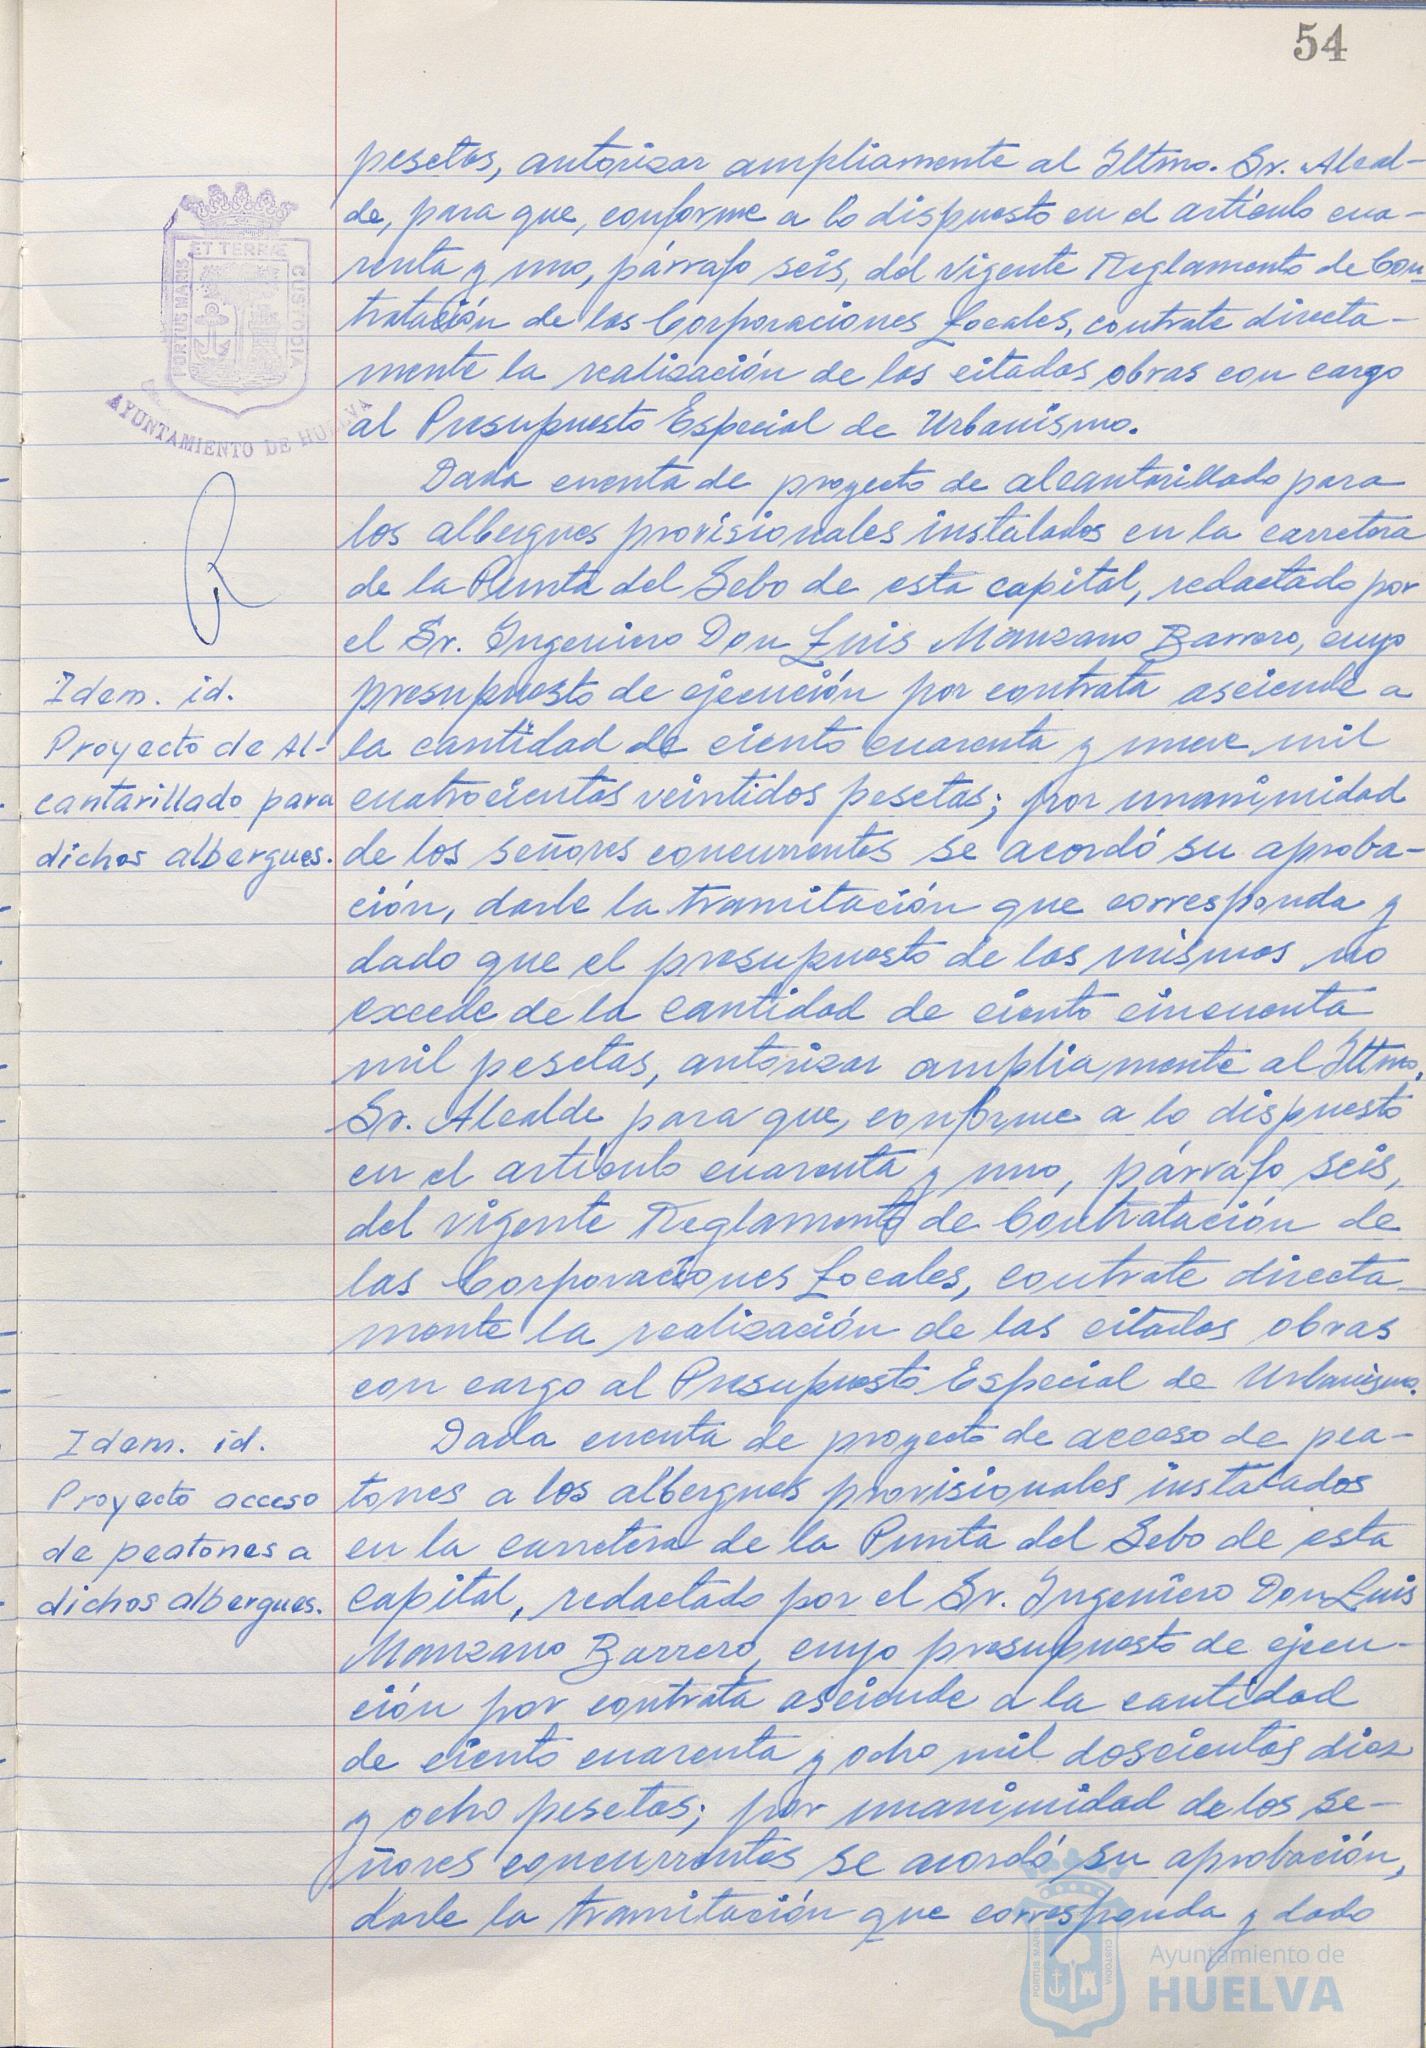 54
pesetas, autorizar ampliamente al Iltmo. Sr. Alcal-
de, para que, conforme a lo dispuesto en el artículo cua-
renta y uno, párrafo seis, del vigente Reglamento de Con-
tratación de las Corporaciones Locales, contrate directa-
mente la realización de las citadas obras con cargo
al Presupuesto Especial de Urbanismo.
PORTUS MARIS
ET TERRÆ
CUSTODIA
AYUNTAMIENTO DE HUELVA
Dada cuenta de proyecto de alcantarillado para
los albergues provisionales instalados en la carretera
de la Punta del Sebo de esta capital, redactado por
el Sr. Ingeniero Don Luis Manzano Barrero, cuyo
presupuesto de ejecución por contrata asciende a
la cantidad de ciento cuarenta y nueve mil
cuatrocientas veintidos pesetas; por unanimidad
de los señores concurrentes se acordó su aproba-
ción, darle la tramitación que corresponda y
dado que el presupuesto de las mismas no
excede de la cantidad de ciento cincuenta
mil pesetas, autorizar ampliamente al Iltmo.
Sr. Alcalde para que, conforme a lo dispuesto
en el artículo cuarenta y uno, párrafo seis,
del vigente Reglamento de Contratación de
las Corporaciones Locales, contrate directa-
mente la realización de las citadas obras
con cargo al Presupuesto Especial de Urbanismo.
Idem. id.
Proyecto de Al-
cantarillado para
dichos albergues.
Dada cuenta de proyecto de acceso de pea-
tones a los albergues provisionales instalados
en la carretera de la Punta del Sebo de esta
capital, redactado por el Sr. Ingeniero Don Luis
Manzano Barrero, cuyo presupuesto de ejecu-
ción por contrata asciende a la cantidad
de ciento cuarenta y ocho mil doscientas diez
y ocho pesetas; por unanimidad de los se-
ñores concurrentes se acordó su aprobación,
darle la tramitación que corresponda y dado
Idem. id.
Proyecto acceso
de peatones a
dichos albergues.
PORTUS MARIS
CUSTODIA
Ayuntamiento de
HUELVA